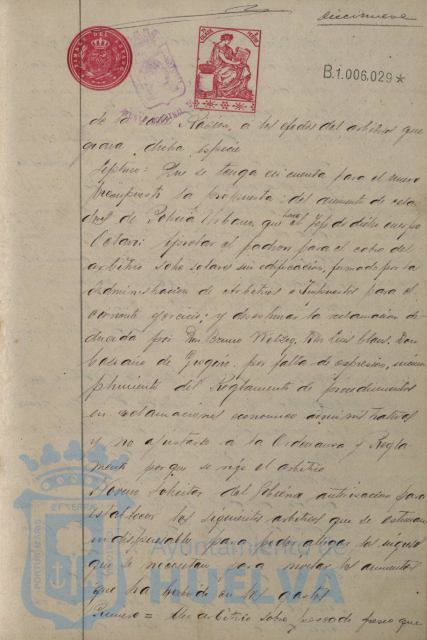 diecinueve
B.1.006.029*
de la á los efectos del arbitrio que
grava dicha especie
Septimo: Que se tenga en cuenta para el nuevo
Presupuesto la propuesta del aumento de
de Policia Urbana, que hace el Jefe de dicho cuerpo
Octavo: Aprobar el padron para el cobro del
arbitrio sobre solares sin edificacion, formado por la
Administracion de Arbitrios é Impuestos para el
corriente ejercicio; y desestimar la reclamacion de-
ducida por Don Bruno Don Luis Don
Casiano de Gregorio por falta de expresion, incum-
plimiento del Reglamento de procedimientos
en reclamaciones economico administrativas
y no ajustarse a la Ordenanza y Regla-
mento porque se rige el arbitrio
Noveno Solicitar del Gobierno autorizacion para
establecer los siguientes arbitrios que se estiman
indispensables para poder allegar los ingresos
que se necesitan para los aumentos
que ha habido en los gastos
Primero = Un arbitrio sobre pescado fresco que
Ayuntamiento de
HUELVA